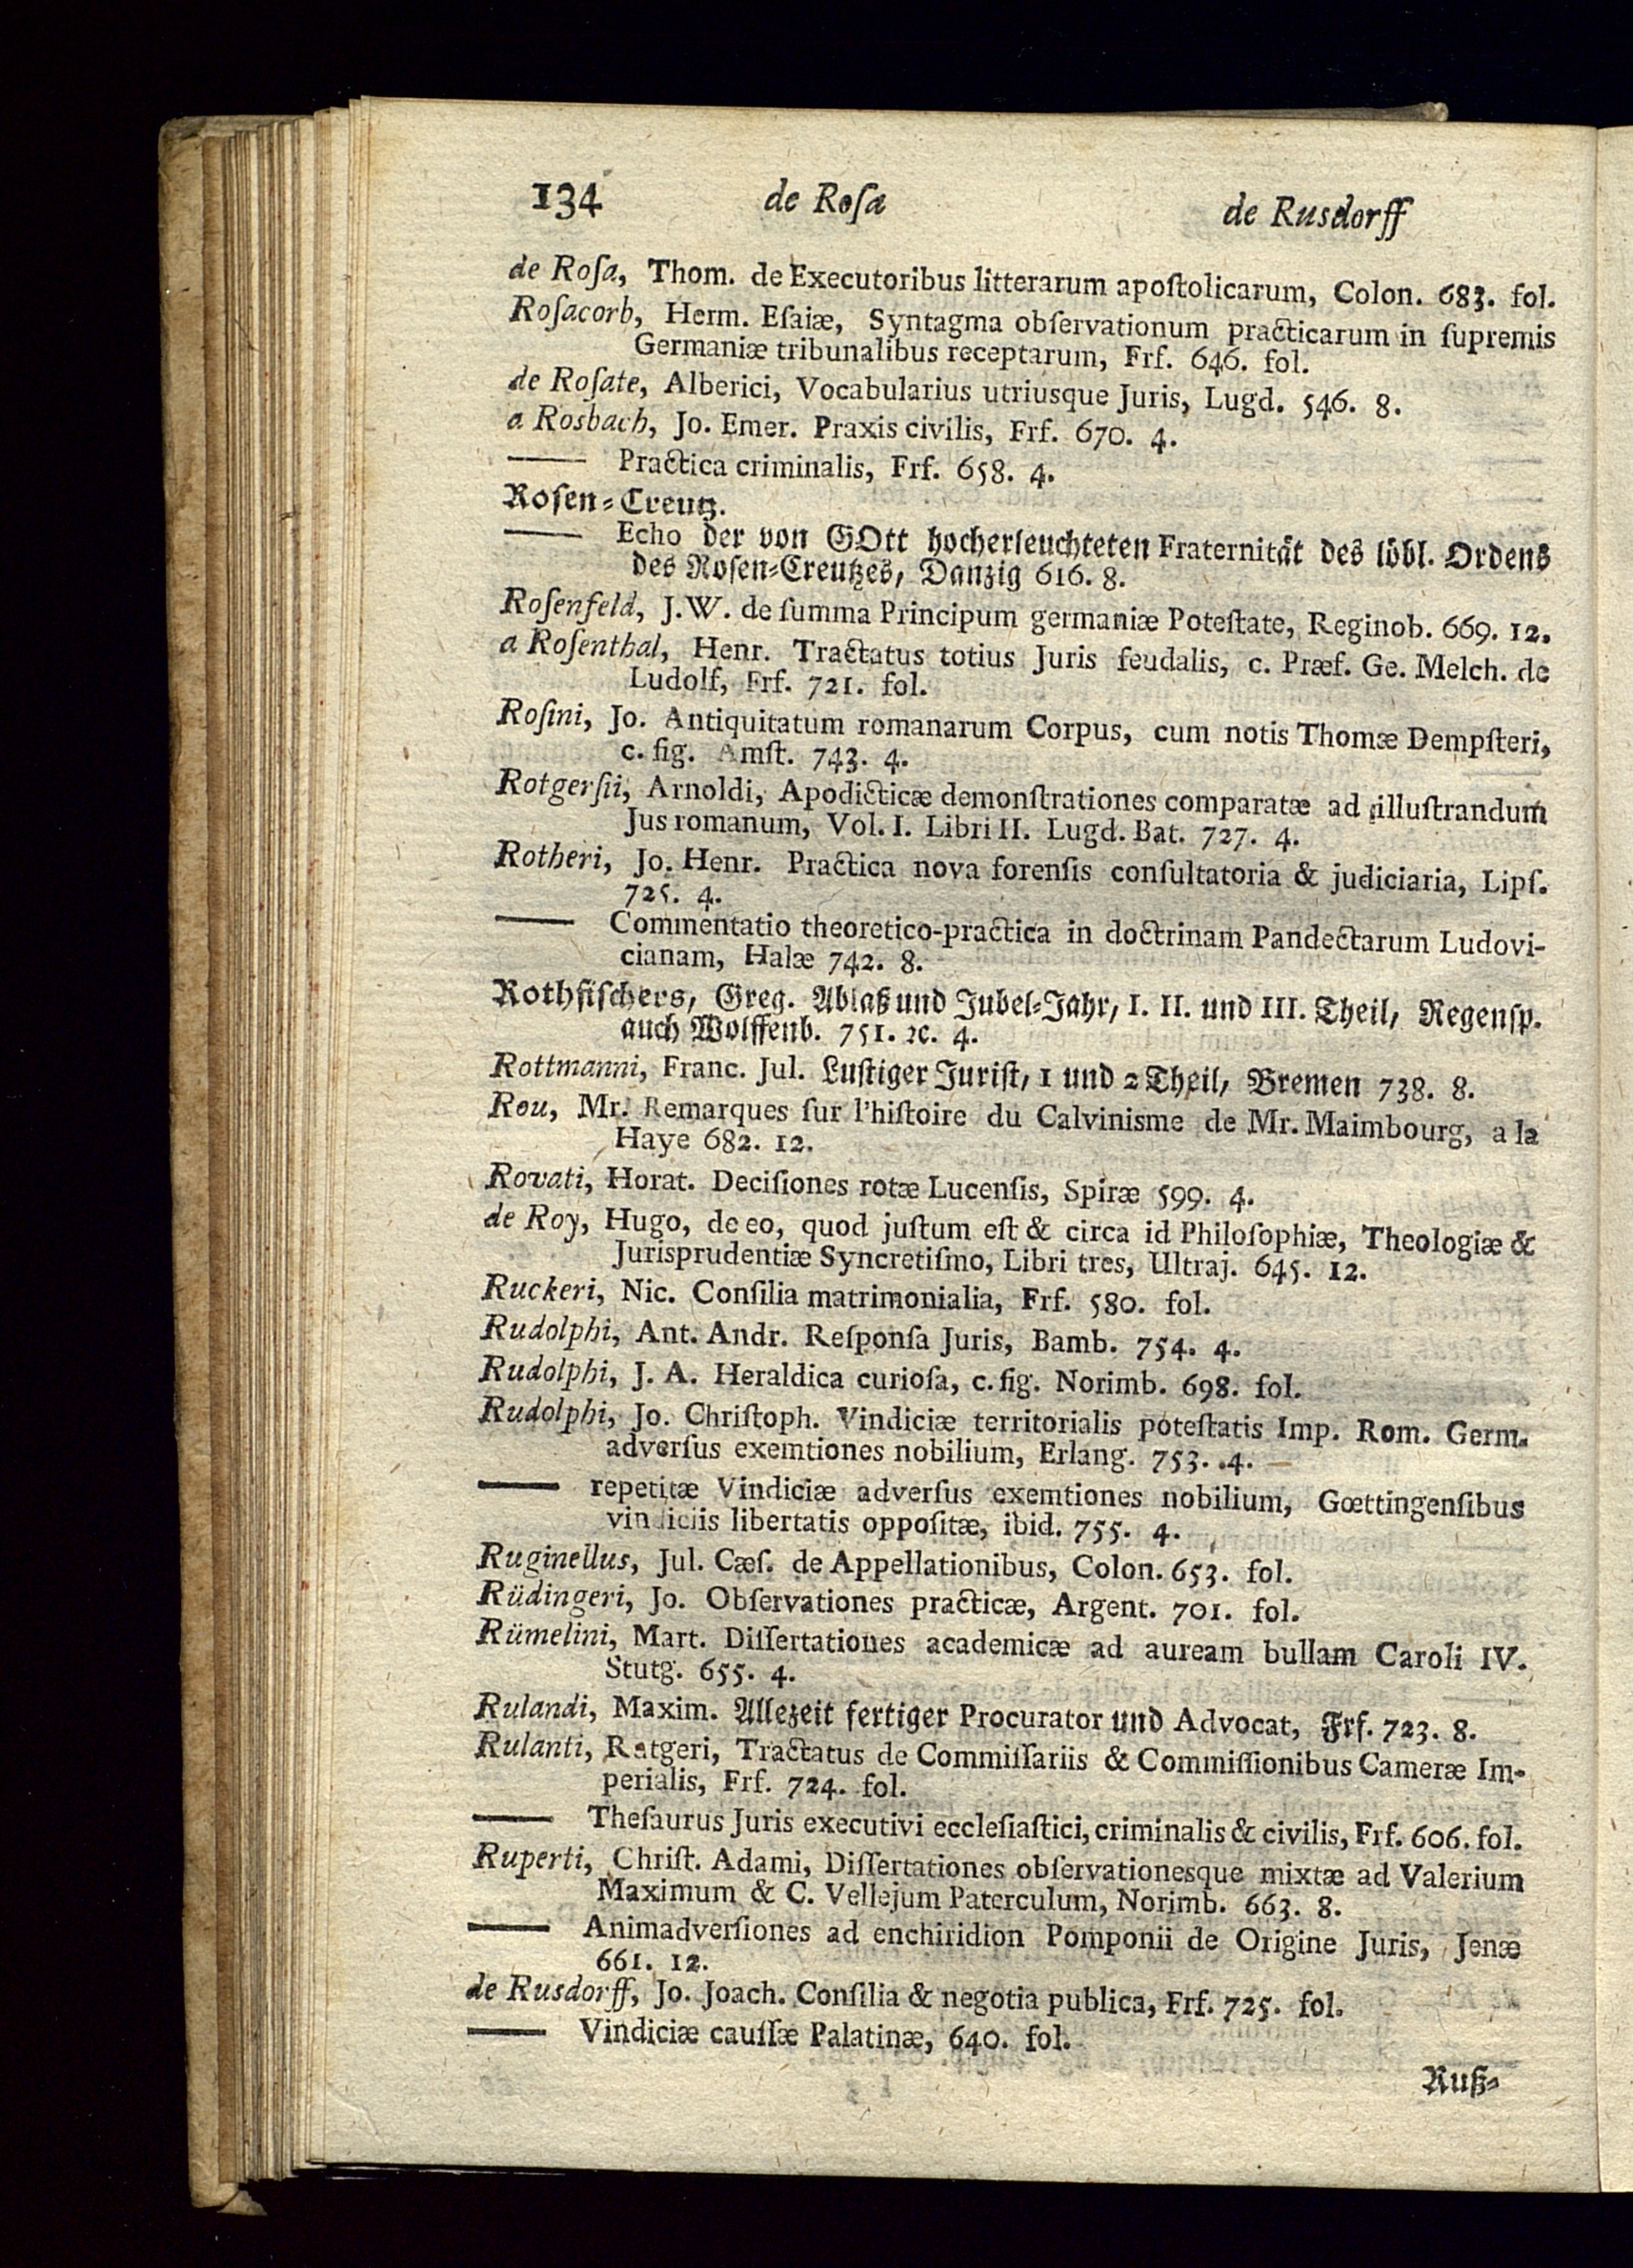 134 de Roſa de Rusdorff
de Roſa, Thom. de Executoribus litterarum apoſtolicarum, Colon. 683. fol.
Roſacorb, Herm. Eſaiæ, Syntagma obſervationum practicarum in ſupremis
Germaniæ tribunalibus receptarum, Frf. 646. fol.
de Roſate, Alberici, Vocabularius utriusque Juris, Lugd. 546. 8.
a Rosbach, Jo. Emer. Praxis civilis, Frf. 670. 4.
—— Practica criminalis, Frf. 658. 4.
Roſen-Creutz.
—— Echo der von GOtt hocherleuchteten Fraternität des löbl. Ordens
des Roſen-Creutzes, Danzig 616. 8.
Roſenfeld, J. W. de ſumma Principum germaniæ Poteſtate, Reginob. 669. 12.
a Roſenthal, Henr. Tractatus totius Juris feudalis, c. Præf. Ge. Melch. de
Ludolf, Frf. 721. fol.
Roſini, Jo. Antiquitatum romanarum Corpus, cum notis Thomæ Dempſteri,
c. fig. Amſt. 743. 4.
Rotgerſii, Arnoldi, Apodicticæ demonſtrationes comparatæ ad illuſtrandum
Jus romanum, Vol. I. Libri II. Lugd. Bat. 727. 4.
Rotheri, Jo. Henr. Practica nova forenſis conſultatoria & judiciaria, Lipſ.
725. 4.
—— Commentatio theoretico-practica in doctrinam Pandectarum Ludovi-
cianam, Halæ 742. 8.
Rothfiſchers, Greg. Ablaß und Jubel-Jahr, I. II. und III. Theil, Regenſp.
auch Wolffenb. 751. ꝛc. 4.
Rottmanni, Franc. Jul. Luſtiger Juriſt, 1 und 2 Theil, Bremen 738. 8.
Rou, Mr. Remarques ſur l'hiſtoire du Calvinisme de Mr. Maimbourg, a la
Haye 682. 12.
Rovati, Horat. Deciſiones rotæ Lucenſis, Spiræ 599. 4.
de Roy, Hugo, de eo, quod juſtum eſt & circa id Philoſophiæ, Theologiæ &
Jurisprudentiæ Syncretiſmo, Libri tres, Ultraj. 645. 12.
Ruckeri, Nic. Conſilia matrimonialia, Frf. 580. fol.
Rudolphi, Ant. Andr. Reſponſa Juris, Bamb. 754. 4.
Rudolphi, J. A. Heraldica curioſa, c. fig. Norimb. 698. fol.
Rudolphi, Jo. Chriſtoph. Vindiciæ territorialis poteſtatis Imp. Rom. Germ.
adverſus exemtiones nobilium, Erlang. 753. 4.
—— repetitæ Vindiciæ adverſus exemtiones nobilium, Gœttingenſibus
vindiciis libertatis oppoſitæ, ibid. 755. 4.
Ruginellus, Jul. Cæſ. de Appellationibus, Colon. 653. fol.
Rüdingeri, Jo. Obſervationes practicæ, Argent. 701. fol.
Rümelini, Mart. Diſſertationes academicæ ad auream bullam Caroli IV.
Stutg. 655. 4.
Rulandi, Maxim. Allezeit fertiger Procurator und Advocat, Frf. 723. 8.
Rulanti, Ratgeri, Tractatus de Commiſſariis & Commiſſionibus Cameræ Im-
perialis, Frf. 724. fol.
—— Theſaurus Juris executivi eccleſiaſtici, criminalis & civilis, Frf. 606. fol.
Ruperti, Chriſt. Adami, Diſſertationes obſervationesque mixtæ ad Valerium
Maximum & C. Vellejum Paterculum, Norimb. 663. 8.
—— Animadverſiones ad enchiridion Pomponii de Origine Juris, Jenæ
661. 12.
de Rusdorff, Jo. Joach. Conſilia & negotia publica, Frf. 725. fol.
—— Vindiciæ cauſſæ Palatinæ, 640. fol.
Ruß-